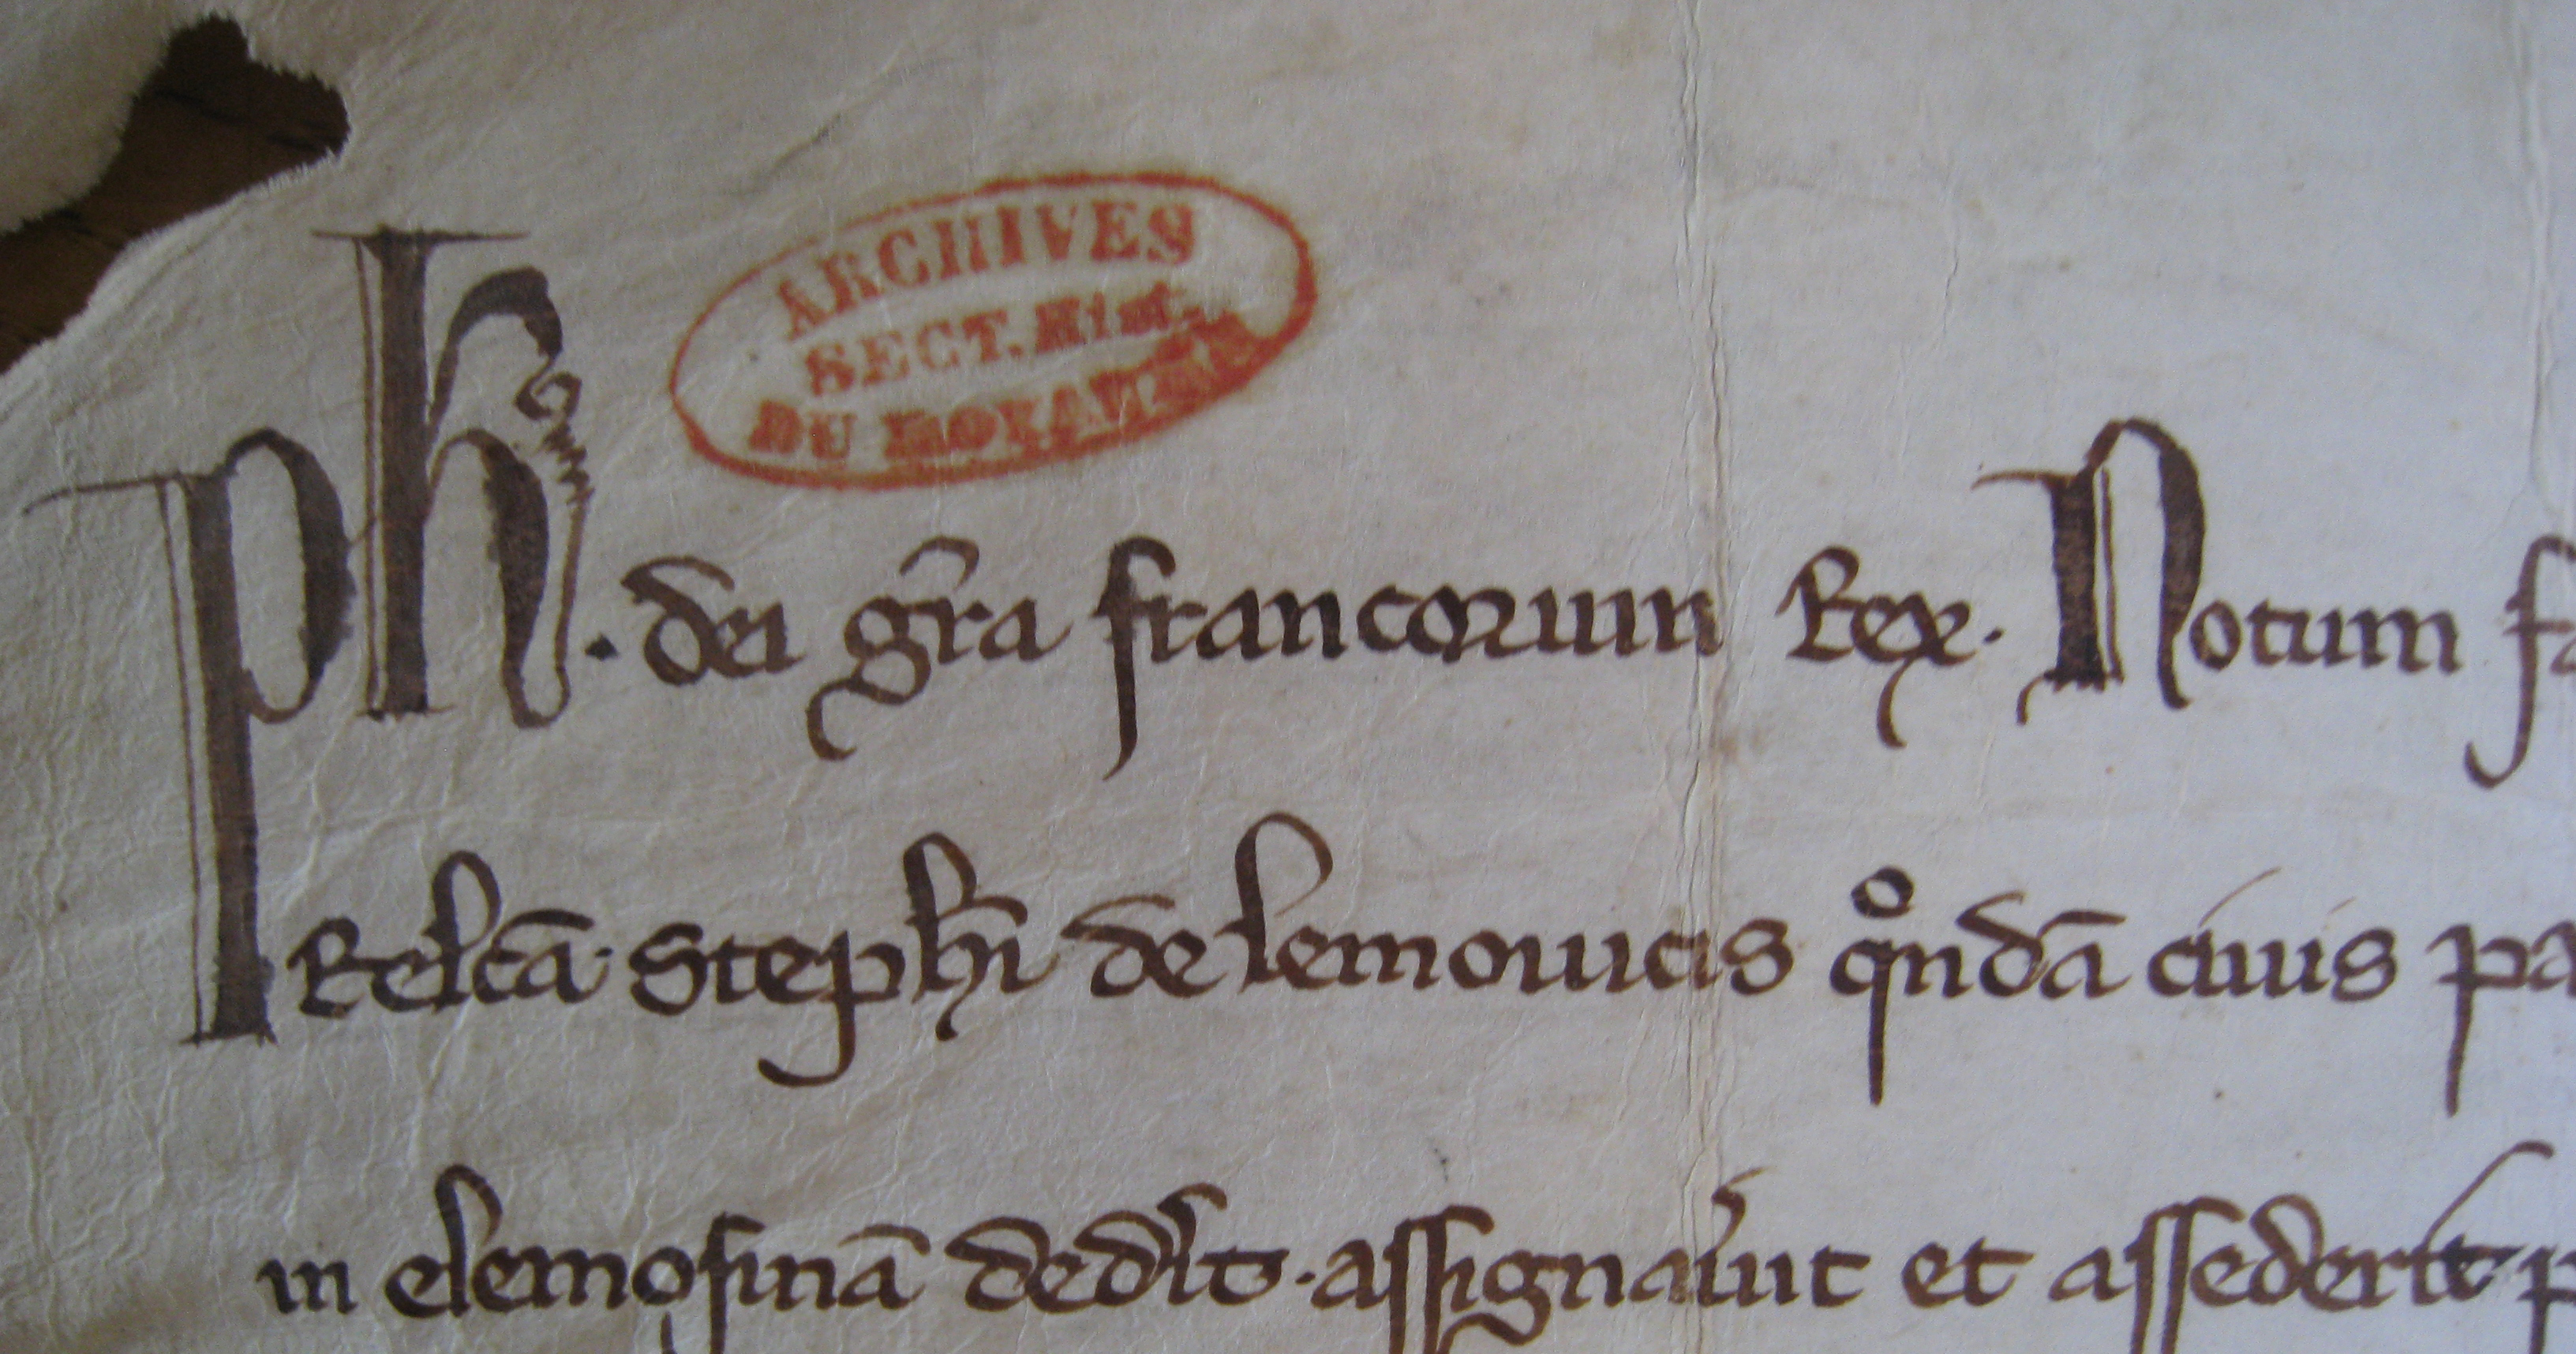 ARCHIVES
SECT. Hist.
DU ROYAUME
Ph. dei gr̄a francorum Rex. Notum fa
Relc̄a Steph̄i de lemouicis qͦndā ciuis pa
in elemosinā ded'it. assignau'it et assederit p